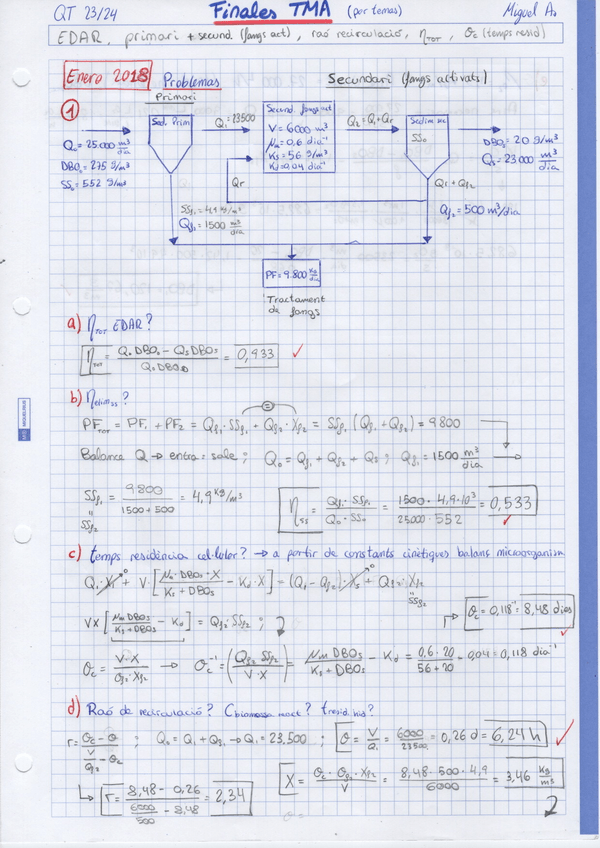 QT 23/24
Finales TMA (por temas)
Miguel A.
EDAR, primari + secund (fangs act), raó recirculació, ηTOT, θc (temps resid)
Enero 2018 Problemas
Secundari (fangs activats)
Primari
1
Sed. Prim
Q1 = 23500
Secund. fangs act
V = 6000 m³
μm = 0,6 dia⁻¹
Ks = 56 g/m³
Kd = 0,04 dia⁻¹
Q2 = Q1 + Qr
Sedim sec
SSo
Q0 = 25.000 m³/dia
DBO0 = 275 g/m³
SS0 = 552 g/m³
DBOs = 20 g/m³
Qs = 23000 m³/dia
Qr
Qr + Qf2
SSf1 = 4,9 kg/m³
Qf1 = 1500 m³/dia
Qf2 = 500 m³/dia
PF = 9.800 kg/dia
Tractament
de fangs
a) ηTOT EDAR?
ηTOT = (Q0 DBO0 − Qs DBOs) / (Q0 DBO0) = 0,933 ✓
b) ηelim SS?
PFTOT = PF1 + PF2 = Qf1 · SSf1 + Qf2 · Xf2 = SSf1 (Qf1 + Qf2) = 9800
Balance Q → entra = sale ; Q0 = Qf1 + Qf2 + Qs ; Qf1 = 1500 m³/dia
SSf1 = 9800 / (1500 + 500) = 4,9 kg/m³
SSf2
ηSS = (Qf1 · SSf1) / (Q0 · SS0) = (1500 · 4,9·10³) / (25000 · 552) = 0,533 ✓
c) temps residència cel·lular? → a partir de constants cinètiques balanç microorganism
Q1 · X1 + V · [(μm · DBOs · X) / (Ks + DBOs) − Kd · X] = (Q1 − Qf2) · Xs + Qf2 · Xf2
SSf2
VX [(μm DBOs) / (Ks + DBOs) − Kd] = Qf2 · SSf2 ;
θc = 0,118⁻¹ = 8,48 dias ✓
θc = (V · X) / (Qf2 · Xf2) → θc⁻¹ = ((Qf2 SSf2) / (V · X)) = (μm DBOs) / (Ks + DBOs) − Kd = (0,6 · 20) / (56 + 20) − 0,04 = 0,118 dia⁻¹
d) Raó de recirculació? Cbiomassa react? tresid. hid?
r = (θc − θ) / (V/Qf2 − θc) ; Q0 = Q1 + Qf1 → Q1 = 23,500 ; θ = V/Q1 = 6000/23500 = 0,26 d = 6,24 h ✓
r = (8,48 − 0,26) / (6000/500 − 8,48) = 2,34
X = (θc · Qf2 · Xf2) / V = (8,48 · 500 · 4,9) / 6000 = 3,46 kg/m³